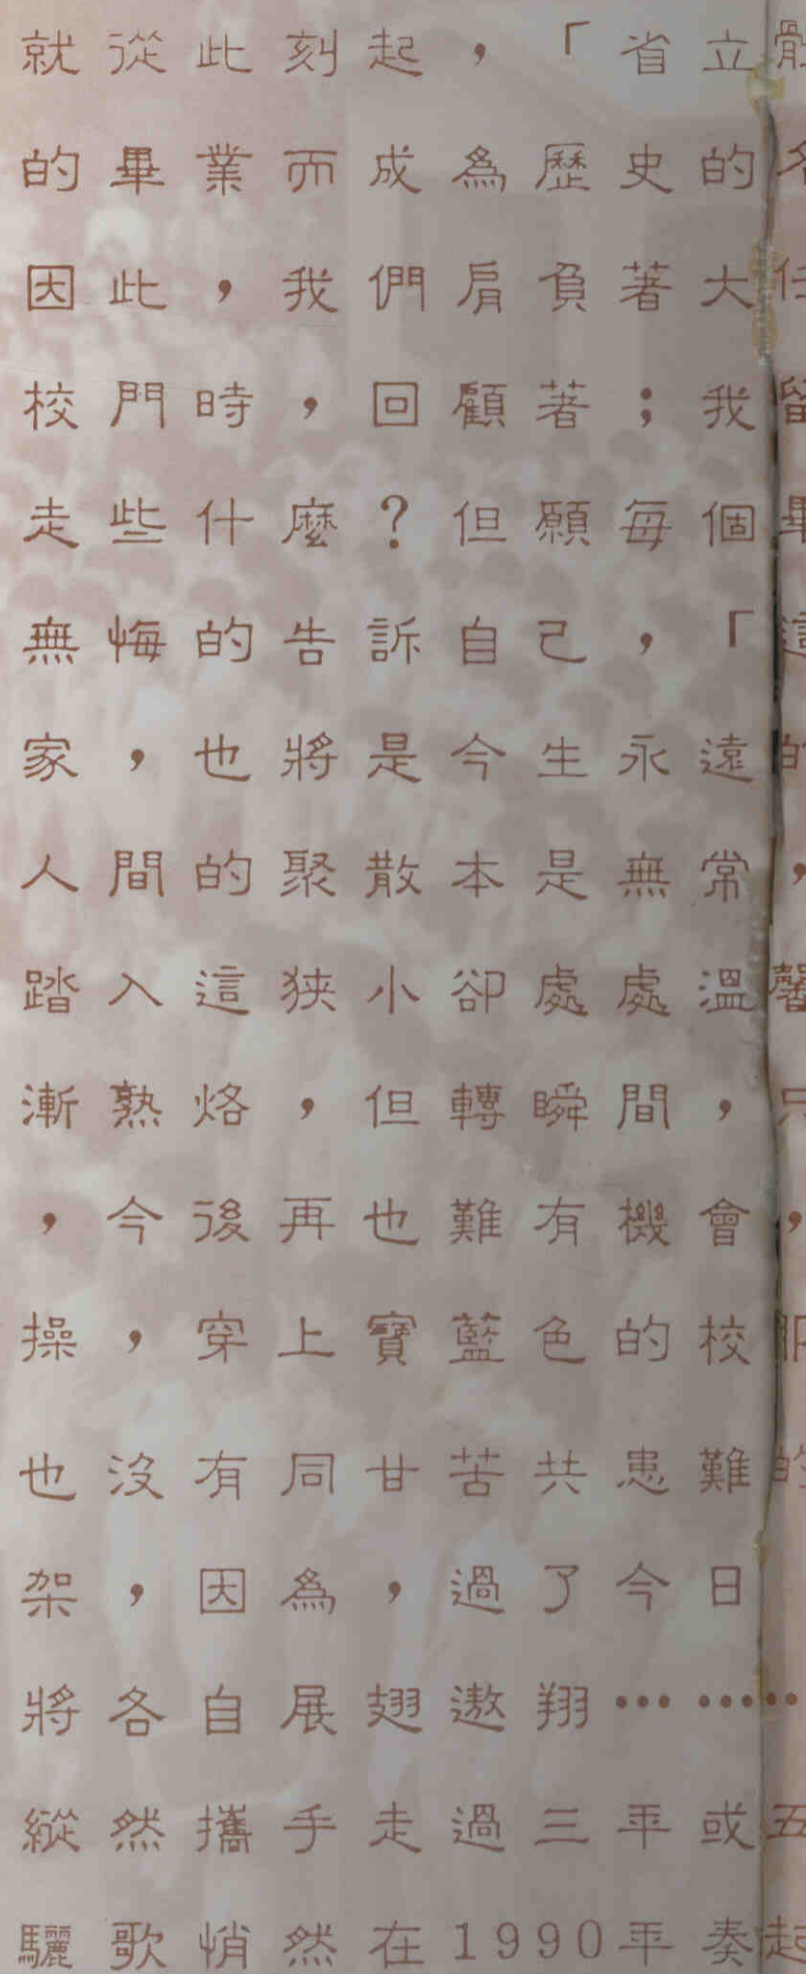 就從此刻起，「省立體
的畢業而成為歷史的名
因此，我們肩負著大任
校門時，回顧著；我留
走些什麼？但願每個畢
無悔的告訴自己，「這
家，也將是今生永遠的
人間的聚散本是無常，
踏入這狹小卻處處溫馨
漸熟烙，但轉瞬間，只
，今後再也難有機會，
操，穿上寶藍色的校服
也沒有同甘苦共患難的
架，因為，過了今日
將各自展翅遨翔……
縱然攜手走過三年或五
驪歌悄然在1990年奏起